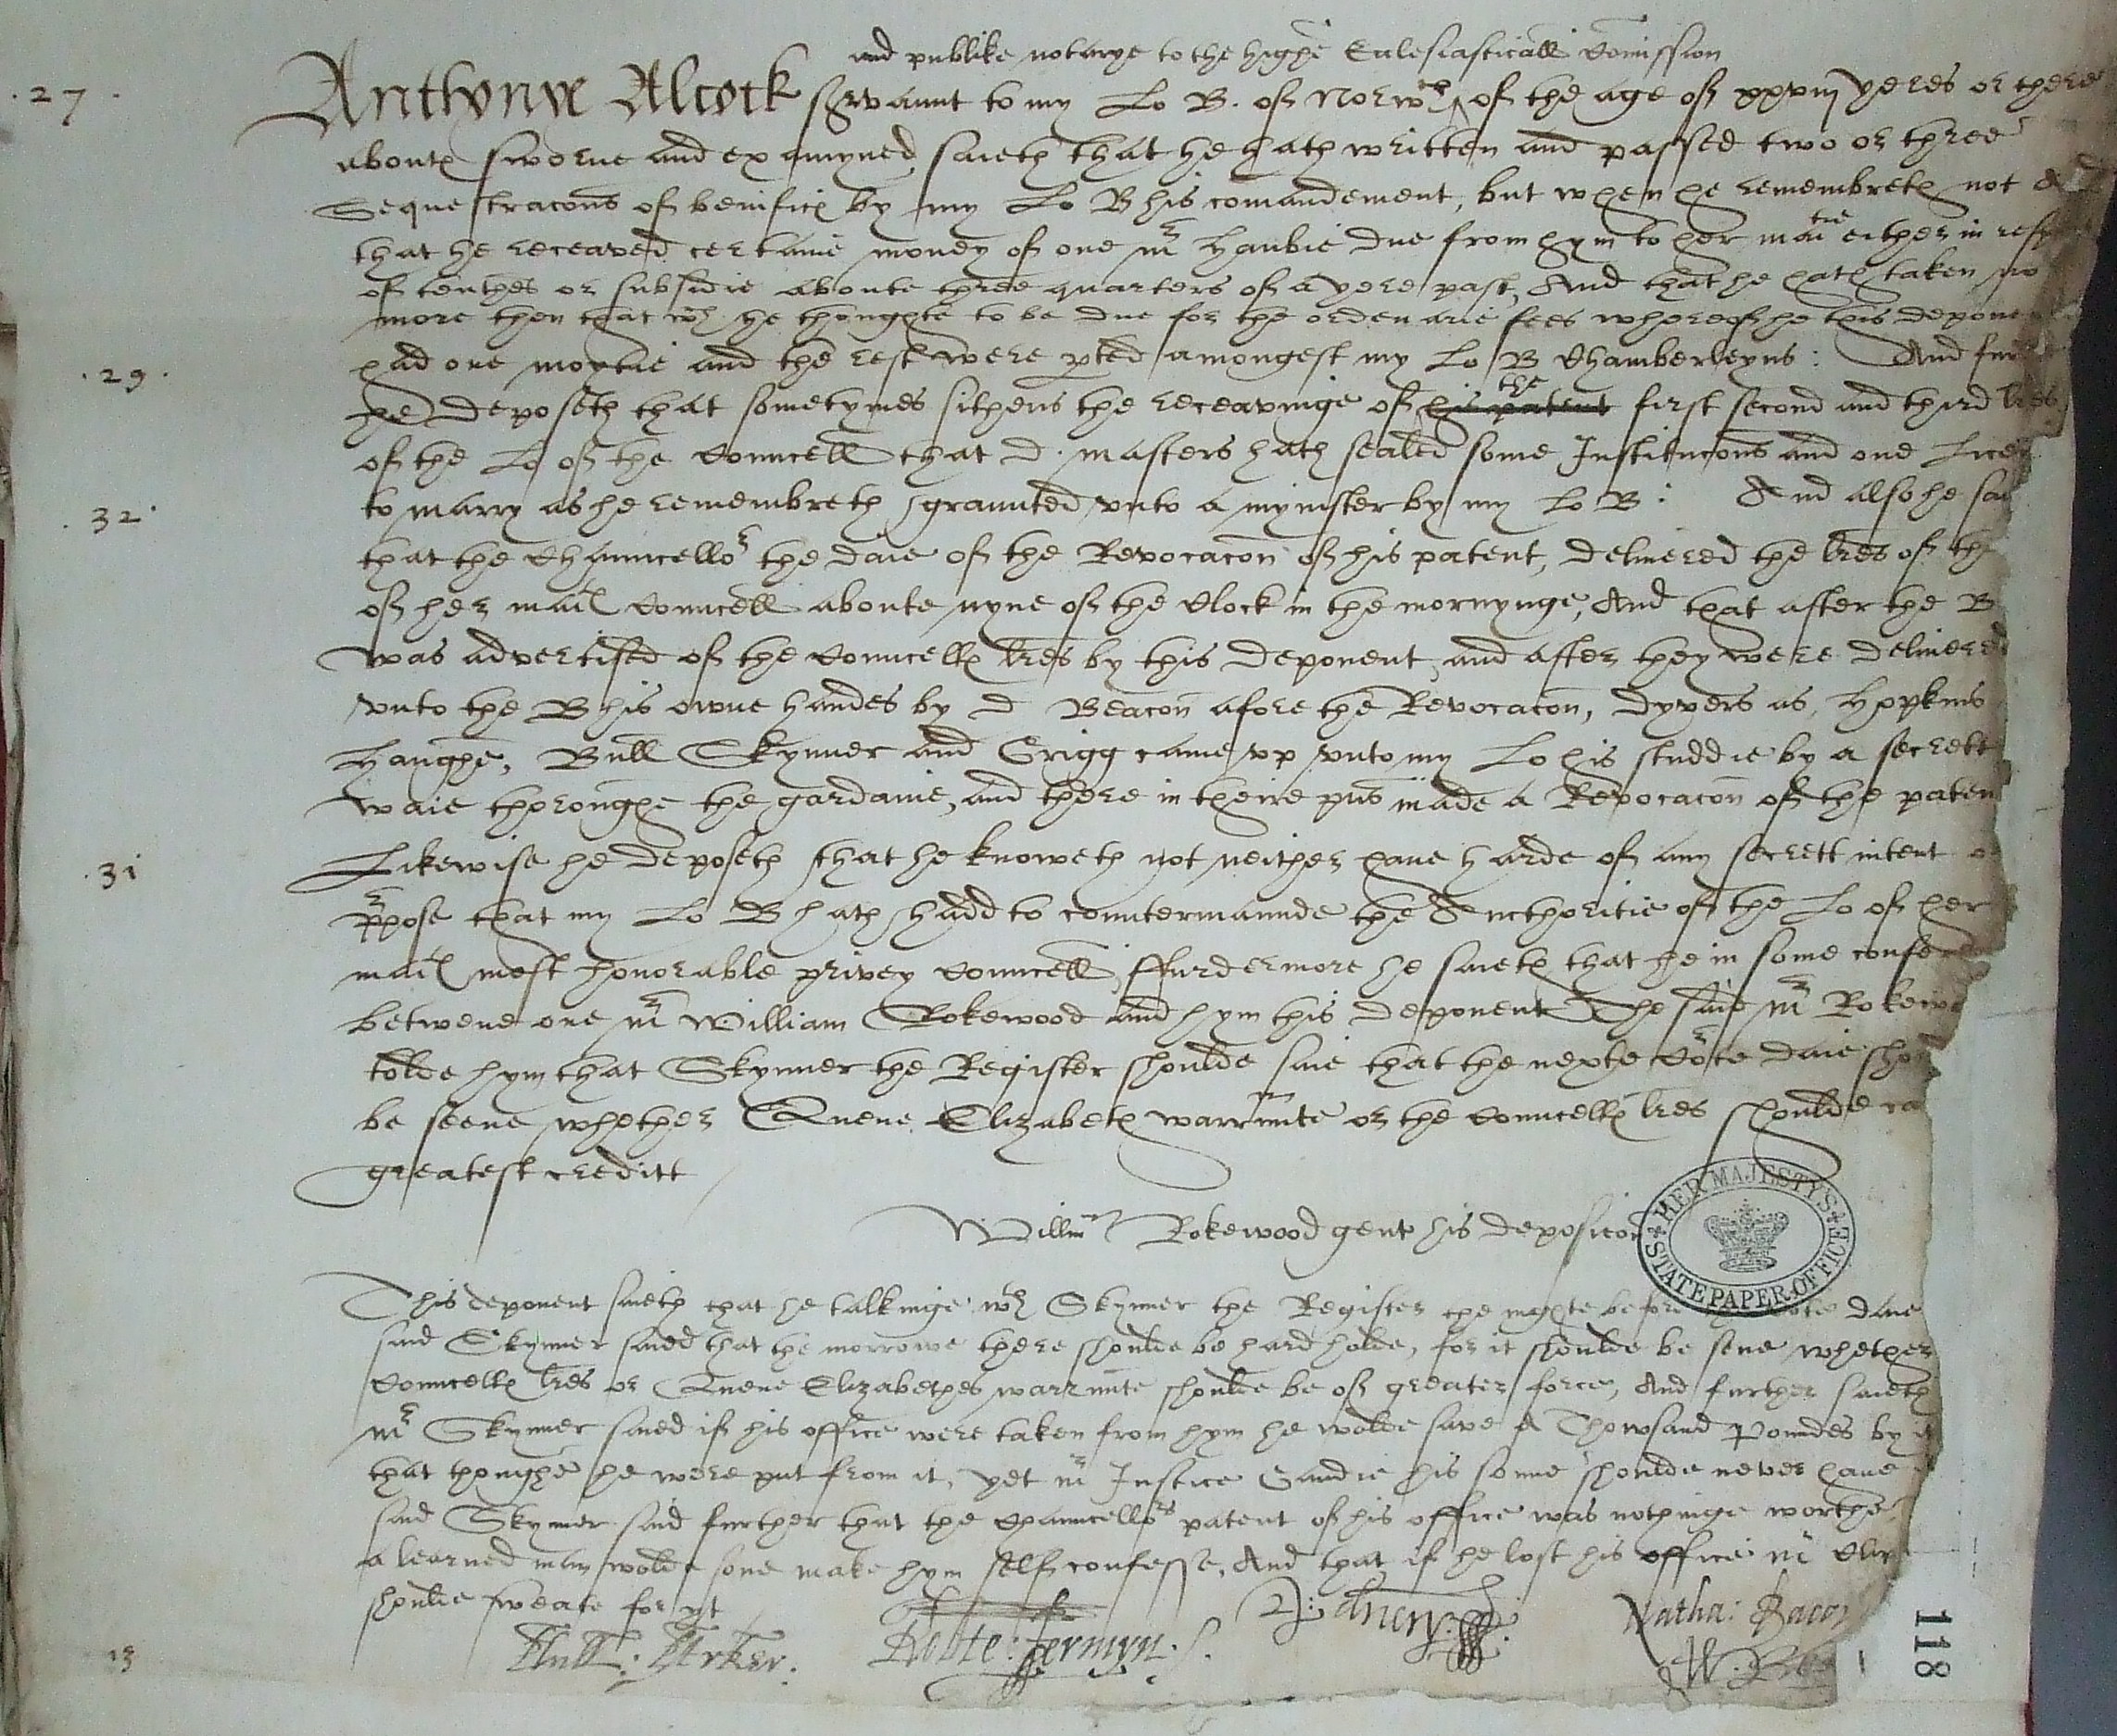 and publike notarye to the highe Eclesiasticall Comission
.27. Anthonye Alcock servaunt to my Lo B. of Norwch ^ of the age of xxviij yeres or there
aboute sworne and examyned saieth that he hath written and passed two or three
Sequestracons of benifice by my Lo B his comandement, but when he remembreth not &
that he receaved certaine money of one Mr Hanbie due from hym to her matie either in resp
of tenthes or subsidie aboute three quarters of a yere past, And that he hath taken no
more then that wch he thoughte to be due for the ordenarie fees whereof he this depone
.29. had one moytie and the rest were pted amongest my Lo B Chamberleyns: And fur
he deposeth that sometymes sithens the receavinge of his patent the first second and third lres
of the Lo of the Councell that D. Masters hath sealed some Institucons and one Lice
.32. to marry as he remembreth graunted unto a mynister by my Lo B: And also he sai
that the Chauncellor the daie of the Revocacon of his patent, delivered the lres of th
of her maties Councell aboute nyne of the Clock in the mornynge, And that after the B
was advertised of the Councells lres by this deponent, and after they were delivered
unto the B his owne handes by D Beacon afore the Revocacon, dyvers as, Hopkins
Haughe, Bull Skynner and Grigg came up unto my Lo his studdie by a secrett
waie thoroughe the gardaine, and there in theire pns made a Revocacon of the paten
.31 Likewise he deposeth that he knoweth not neither have harde of any secrett intent o
prpose that my Lo B hath hadd to countermaunde the Aucthoritie of the Lo of her
maties most honorable privey Councell, ffurdermore he saieth that he in some confer
betwene one Mr William Rokewood and hym this deponent The said Mr Rokewo
tolde hym that Skynner the Register shoulde saie that the nexte Corte daie sho
be seene whether Quene Elizabeth warraunte or the Councells lres shoulde ca
greatest creditt
Willm Rokewood gent his deposicon
HER MAJESTY'S STATE PAPER OFFICE
This deponent saieth that he talkinge wth Skynner the Register the nighte before Corte daie
said Skynner saied that the morrowe there shoulde be hard holde, for it shoulde be sene whether
Councells lres or Quene Elizabethes warraunte shoulde be of greater force, And further saieth
Mr Skynner saied if his office were taken from hym he wolde save A Thowsand Poundes by it
that thoughe he were put from it, yet Mr Justice Gaudie his sonne shoulde never have
said Skynner said further that the Chauncellors patent of his office was nothinge worthe
a learned man wolde sone make hym self confesse, And that if he lost his office Mr
shoulde sweate for yt
Robte: Jermyn. Natha: Bacon
13
118